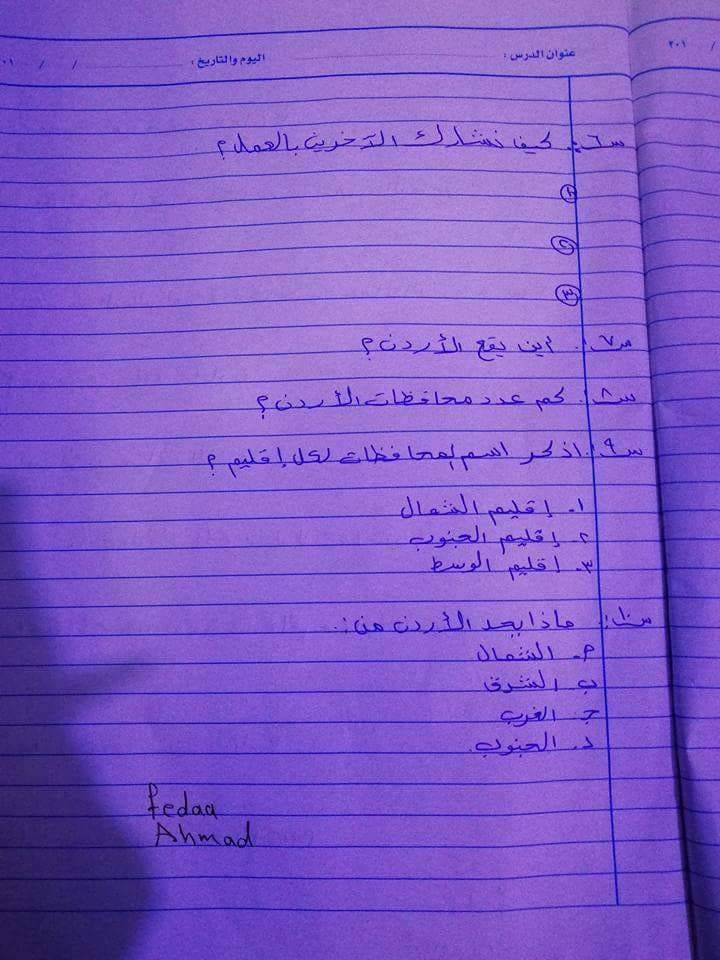 عنوان الدرس: اليوم والتاريخ: / / ٢٠١
س٦: كيف نشارك الآخرين بالعمل؟
١
٢
٣
س٧: أين يقع الأردن؟
س٨: كم عدد محافظات الأردن؟
س٩: اذكر اسم المحافظات لكل إقليم؟
١. إقليم الشمال
٢. إقليم الجنوب
٣. إقليم الوسط
س١٠: ماذا يحد الأردن من:
أ. الشمال
ب. الشرق
ج. الغرب
د. الجنوب
fedaa
Ahmad